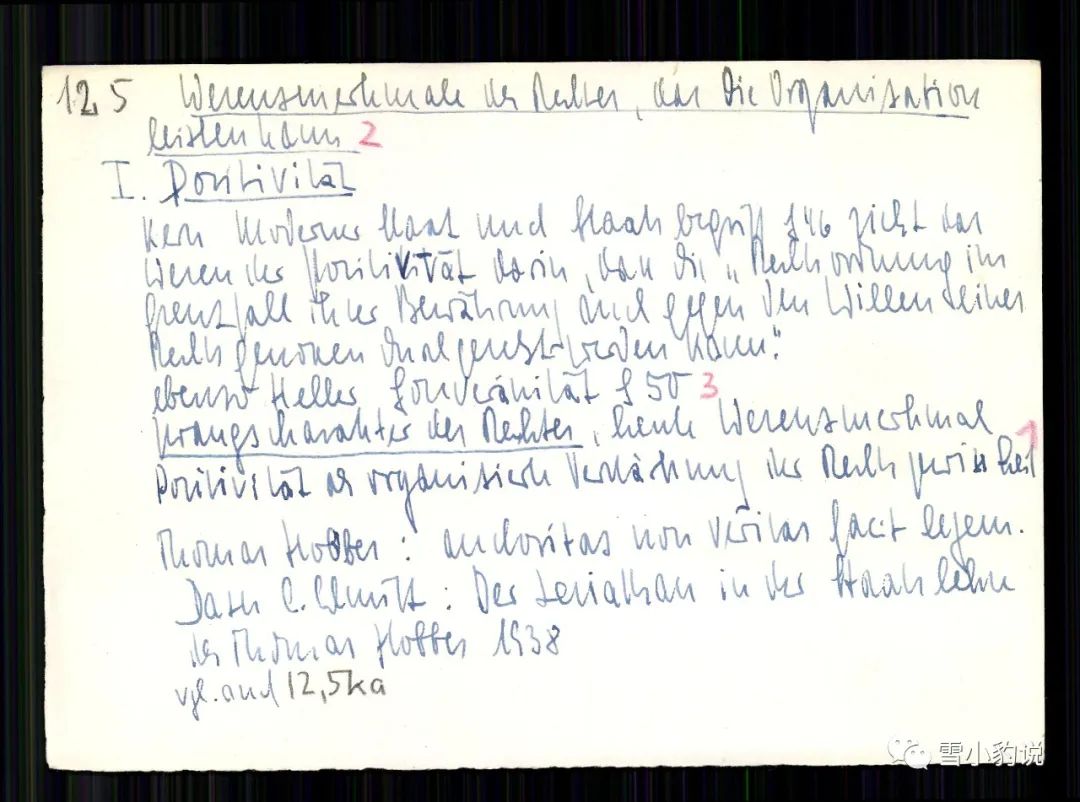 12,5 Wesensmerkmale des Rechtes, das die Organisation
leisten kann 2
I. Positivität
Kern Moderner Staat und Staatsbegriff S 46 sieht das
Wesen der Positivität darin, dass die „Rechtsordnung im
Grenzfall ihrer Bewährung auch gegen den Willen eines
Rechtsgenossen durchgesetzt werden kann."
ebenso Heller Souveränität S 50 3
Zwangscharakter des Rechtes, heute Wesensmerkmal 1
Positivität als organisierte der Rechtsgewissheit
Thomas Hobbes: auctoritas non veritas facit legem.
Dazu C. Schmitt: Der Leviathan in der Staatslehre
des Thomas Hobbes 1938
vgl. auch 12,5ka
雪小豹说